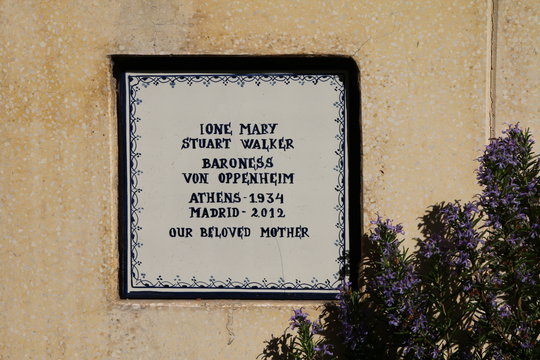 IONE MARY
STUART WALKER
BARONESS
VON OPPENHEIM
ATHENS - 1934
MADRID - 2012
OUR BELOVED MOTHER